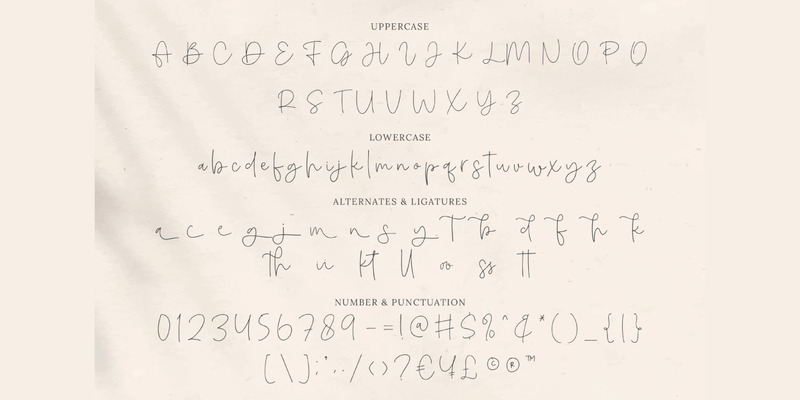 UPPERCASE
A B C D E F G H I J K L M N O P Q
R S T U V W X Y Z
LOWERCASE
a b c d e f g h i j k l m n o p q r s t u v w x y z
ALTERNATES & LIGATURES
a c e g j m n s y T b d f h k
th ii kt ll oo ss tt
NUMBER & PUNCTUATION
0 1 2 3 4 5 6 7 8 9 - = ! @ # $ % ^ & * ( ) _ { | }
[ \ ] ; ' , . / < > ? € ¥ £ © ® ™